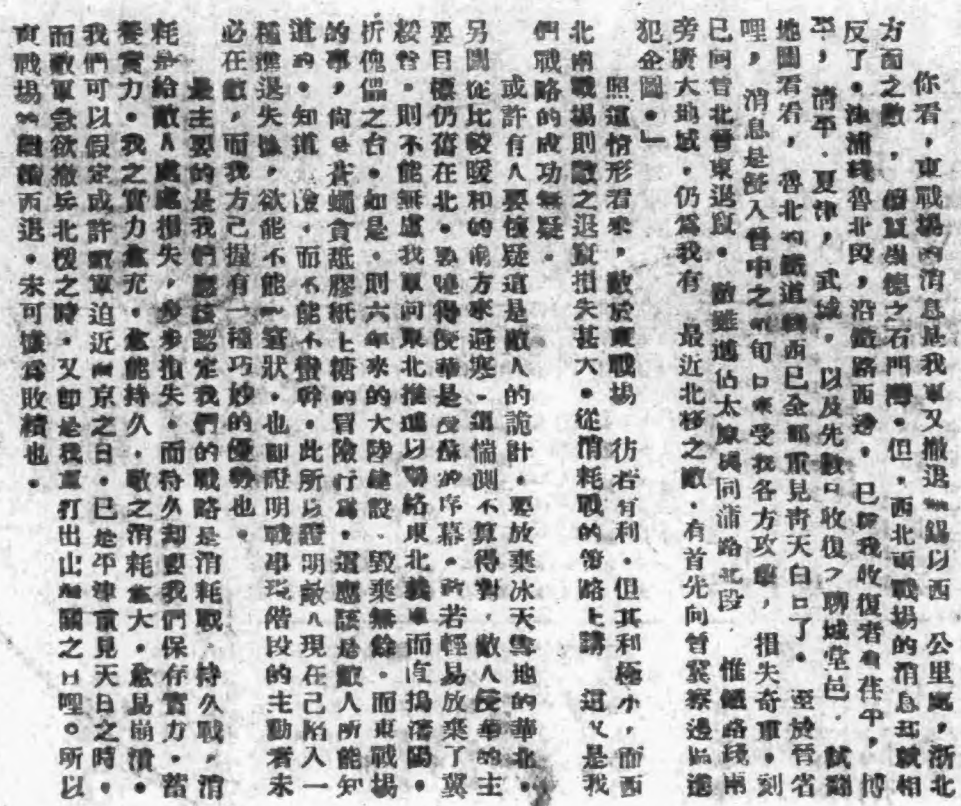 你看，東戰場的消息是我軍又撤退無錫以西　公里處，浙北
方面之敵　，偵買崇德之石門灣。但，西北兩戰場的消息却就相
反了。津浦綫魯北段，沿鐵路西邊，已由我收復者有茌平，博
平，清平．夏津，武城，以及先數日收復之聊城堂邑．試翻
地圖看看，魯北的鐵道綫西已全部重見青天白日了。至於晉省
哩，消息是侵入晉中之敵旬日來受我各方攻擊，損失奇重，刻
已向晉北晉東退竄。敵雖進佔太原與同蒲路北段　惟鐵路綫兩
旁廣大地域，仍爲我有　最近北移之敵，有首先向晉冀察邊區進
犯企圖。」
照這情形看來，敵於東戰場　彷若有利，但其利極小，而西
北兩戰場則敵之退竄損失甚大。從消耗戰的策略上講　這又是我
們戰略的成功無疑。
或許有人要懷疑這是敵人的詭計，要放棄冰天雪地的華北。
另圖從比較暖和的南方來避寒。這惴測不算得對，敵人侵華的主
要目標仍舊在北。要曉得侵華是反蘇的序幕。苟若輕易放棄了冀
綏晉，則不能無慮我軍向東北推進以聯絡東北義軍而直搗瀋陽。
折傀儡之台。如是，則六年來的大陸建設　毀棄無餘。而東戰場
的事，尙是蒼蠅貪舐膠紙上糖的冒險行爲。這應該是敵人所能知
道的。知道　險，而不能不蠻幹，此所以證明敵人現在已陷入一
種進退失據，欲能不能的窘狀。也卽證明戰事現階段的主動者未
必在敵，而我方已握有一種巧妙的優勢也。
最主要的是我們應該認定我們的戰略是消耗戰　持久戰，消
耗是給敵人處處損失，步步損失，而持久却要我們保存實力，蓄
養實力。我之實力愈充，愈能持久，敵之消耗愈大，愈見崩潰。
我們可以假定或許敵軍迫近南京之日，已是平津重見天日之時，
而敵軍急欲撤兵北援之時，又卽是我軍打出山海關之日哩。所以
東戰場的漸漸西退。未可據爲敗績也。